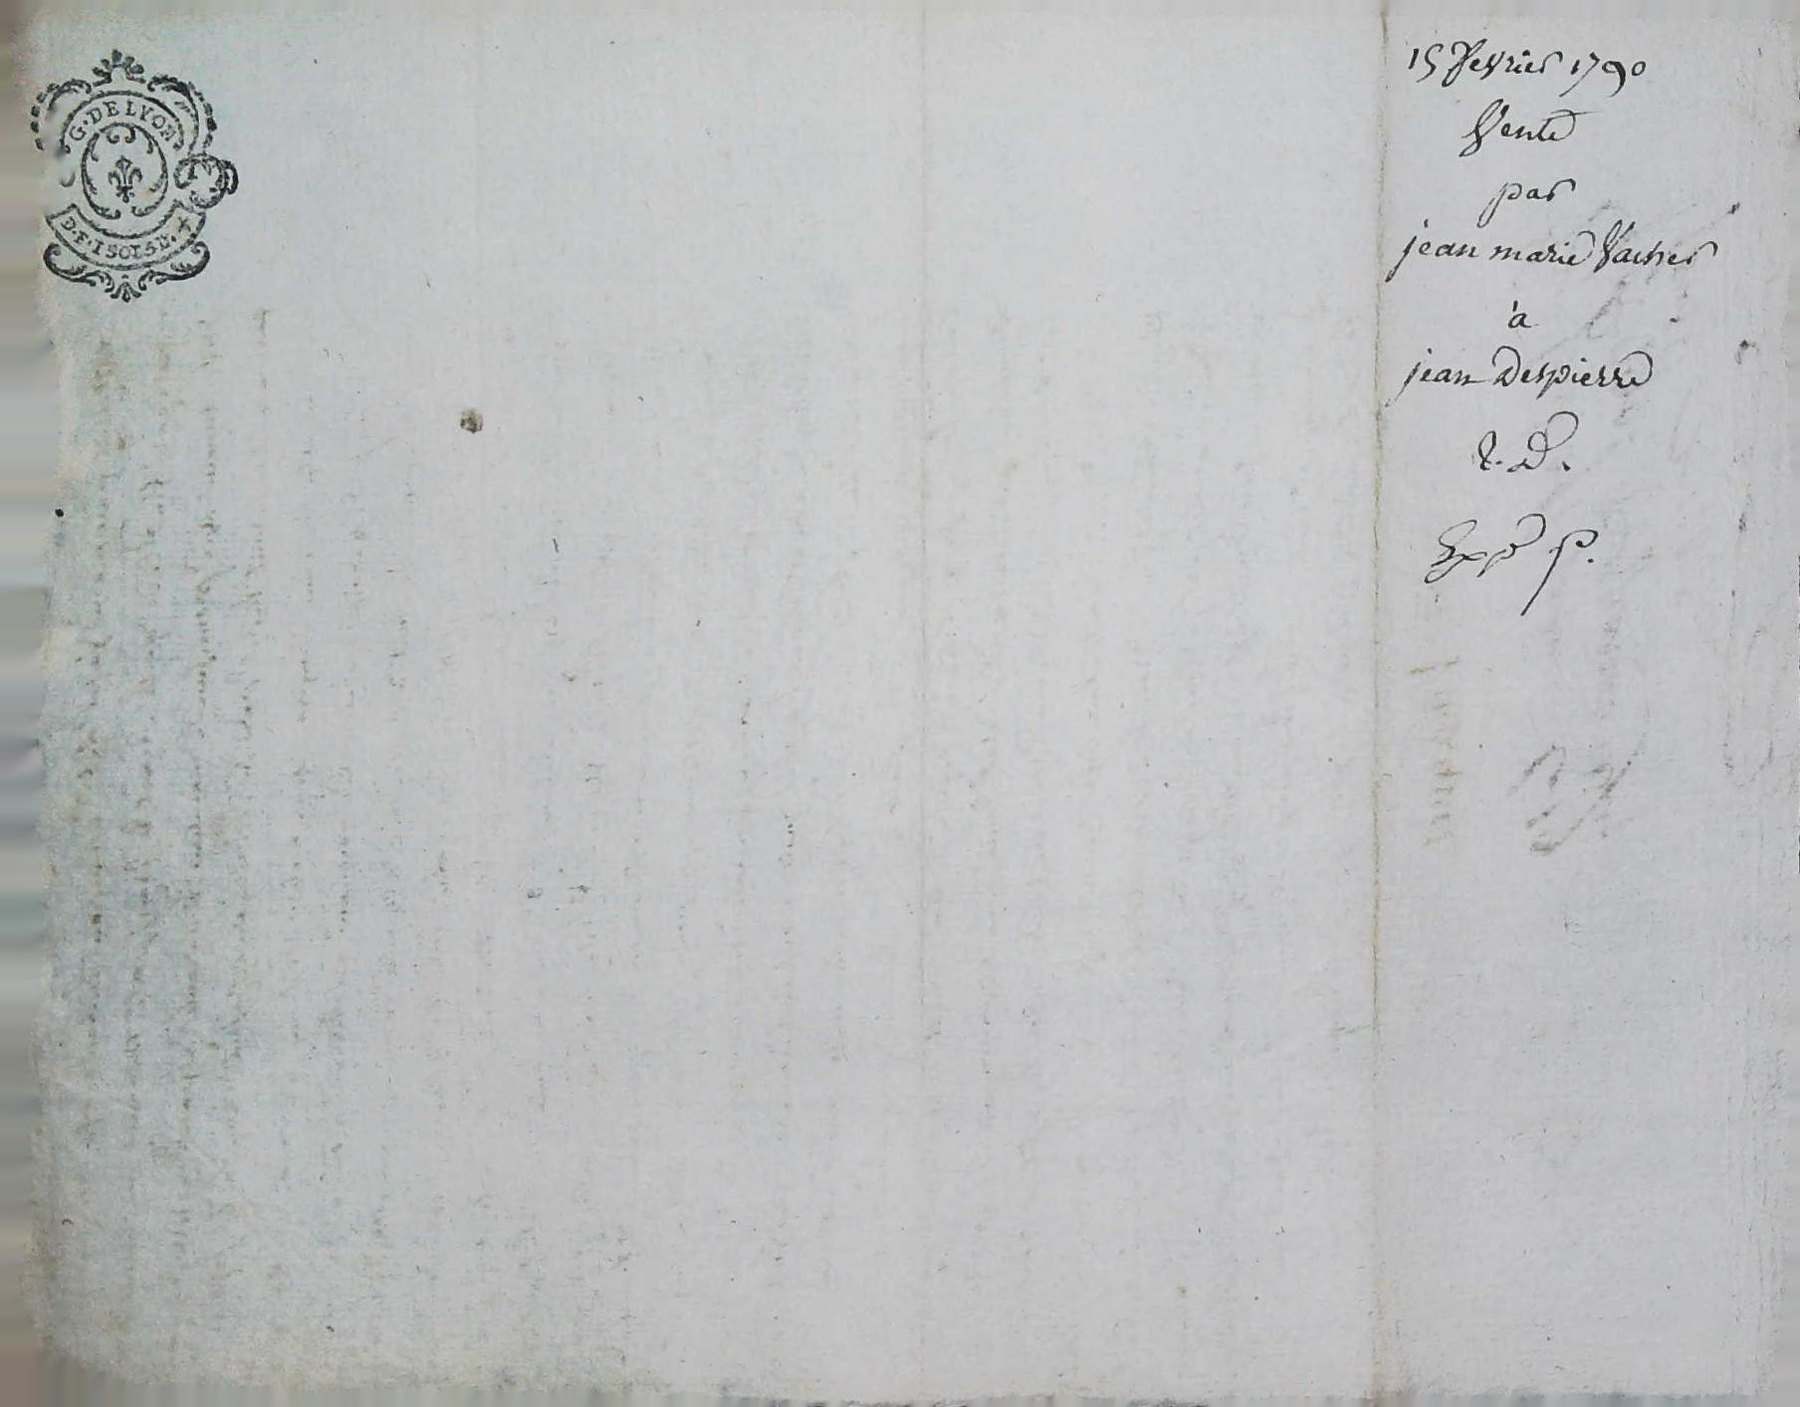 G. DE LYON
D. F. 1 SOL 5 D.
15 fevrier 1790
Vente
par
jean marie Vacher
à
jean Despierre
Exp